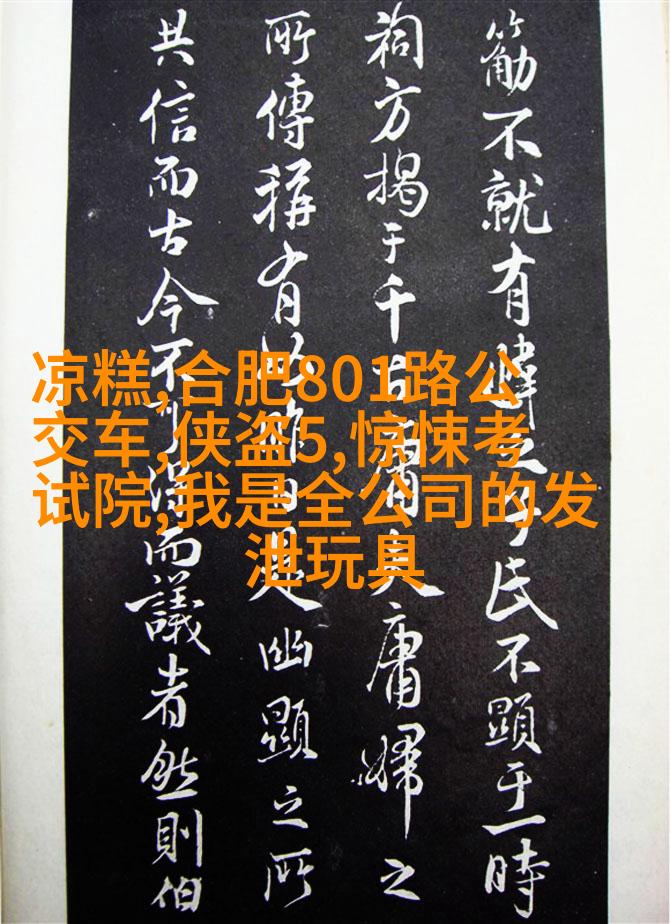 不就有之氏不顯于一時
祠方揭于千古庸夫庸婦之
所傳稱有以是幽顯之所
共信而古今不可得而議者然則伯
凉糕,合肥801路公
交车,侠盗5,惊悚考
试院,我是全公司的发
泄玩具